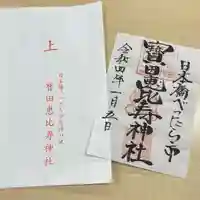 上
寳田恵比寿神社
日本橋べったら市
寳田恵比寿神社
令和四年一月五日